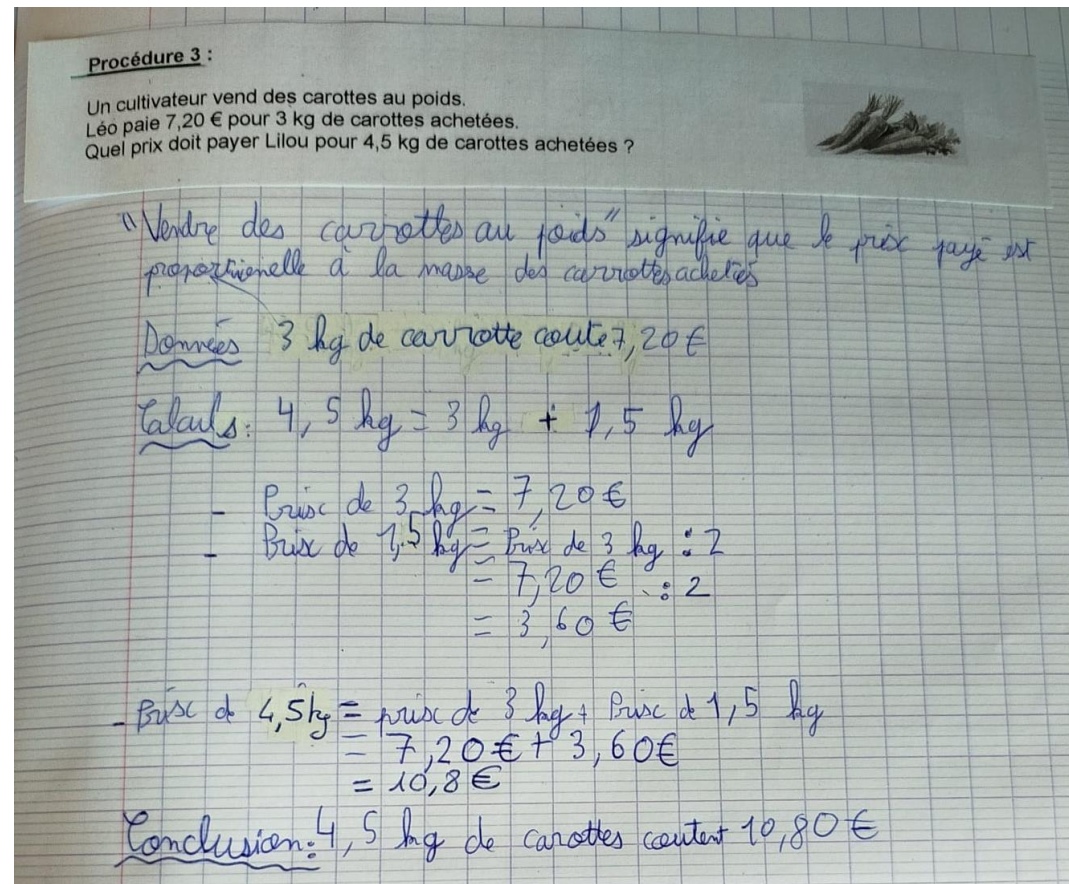 Procédure 3 :
Un cultivateur vend des carottes au poids.
Léo paie 7,20 € pour 3 kg de carottes achetées.
Quel prix doit payer Lilou pour 4,5 kg de carottes achetées ?
"Vendre des carrottes au poids" signifie que le prix payé est
proportionelle à la masse des carrottes achetés
Données 3 kg de carrotte coute 7,20 €
Calculs: 4,5 kg = 3 kg + 1,5 kg
- Prix de 3 kg = 7,20 €
- Prix de 1,5 kg = Prix de 3 kg : 2
= 7,20 € : 2
= 3,60 €
- Prix de 4,5 kg = prix de 3 kg + Prix de 1,5 kg
= 7,20 € + 3,60 €
= 10,8 €
Conclusion: 4,5 kg de carottes coutent 10,80 €